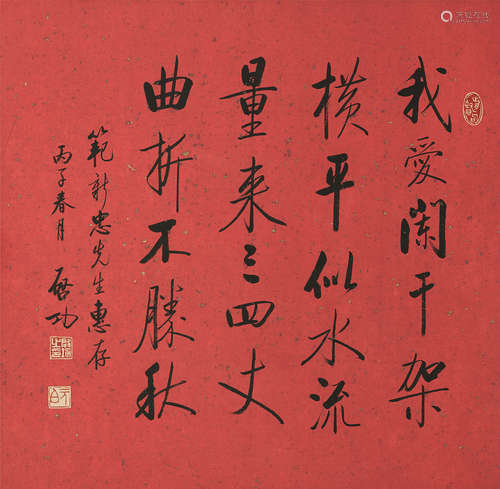 我愛闌干架
橫平似水流
量来三四丈
曲折不勝秋
範新忠先生惠存
丙子春月
啓功